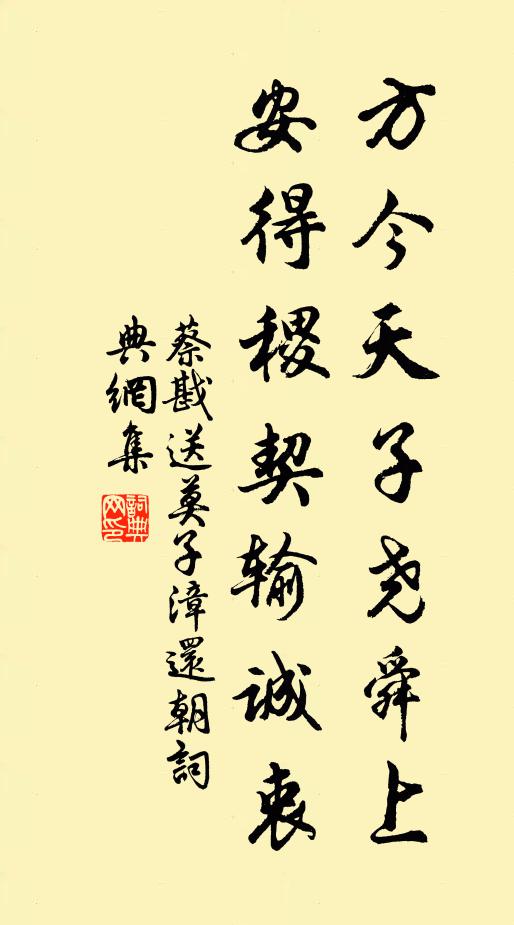 方今天子尧舜上
安得稷契输诚衷
蔡戡送莫子漳還朝詞
典網集
詞典网印